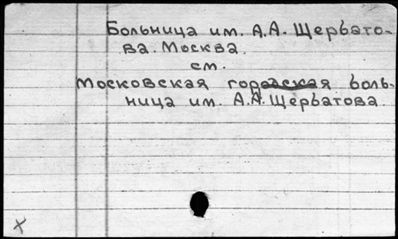 Больница им. А.А. Щербато-
ва. Москва.
см.
Московская городская боль-
ница им. А.А. Щербатова.
x